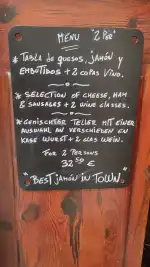 MENU "2 PER"
* TABLA DE QUESOS, JAMÓN Y
EMBUTIDOS + 2 COPAS VINO.
* SELECTION OF CHEESE, HAM
& SAUSAGES + 2 WINE GLASSES.
* GEMISCHTER TELLER MIT EINER
AUSWAHL AN VERSCHIEDEN EN
KASE WURST + 2 GLAS WEIN.
FOR 2 PERSONS
32,50 €
"BEST JAMÓN IN TOWN"